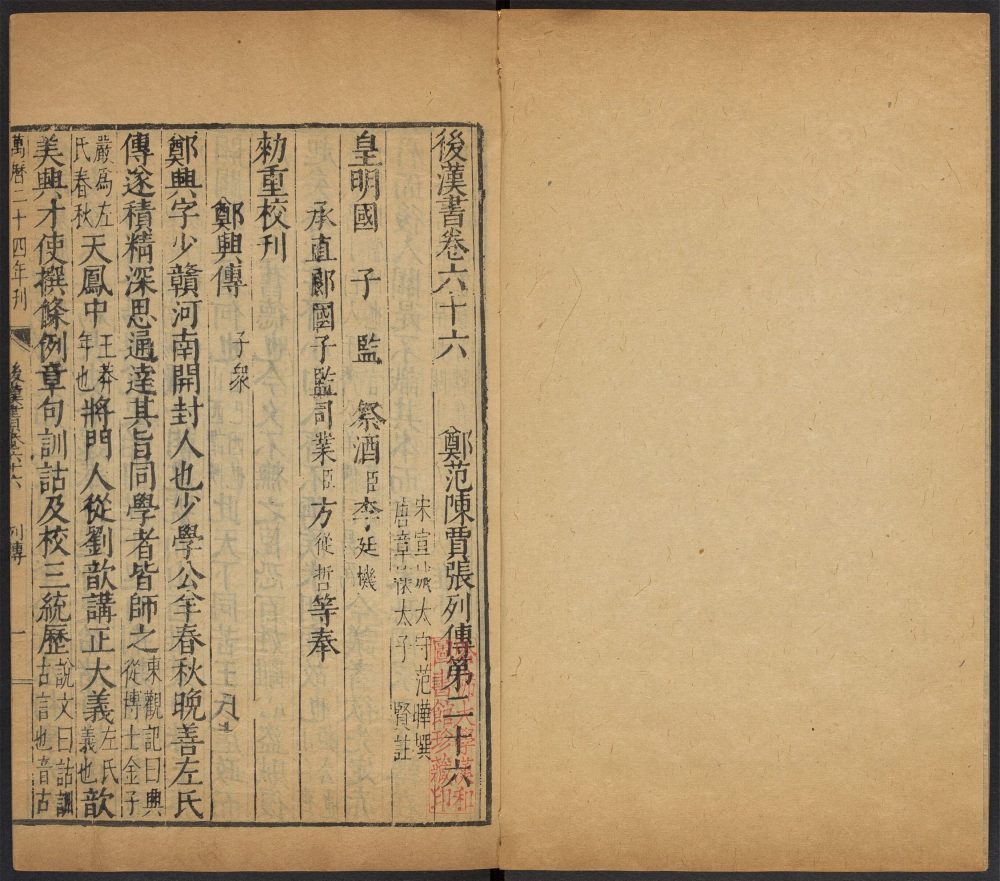 後漢書卷六十六　鄭范陳賈張列傳第二十六
宋宣城太守范曄撰
唐章懷太子賢註
皇明國子監祭酒臣李廷機
承直郎國子監司業臣方從哲等奉
勑重校刊
鄭興傳子衆
鄭興字少贛河南開封人也少學公羊春秋晚善左氏
傳遂積精深思通達其旨同學者皆師之東觀記曰興從博士金子
嚴爲左氏春秋天鳳中王莽年也將門人從劉歆講正大義左氏義也歆
美興才使撰條例章句訓詁及校三統歷說文曰詁訓古言也音古
萬曆二十四年刊　後漢書卷六十六　列傳　一